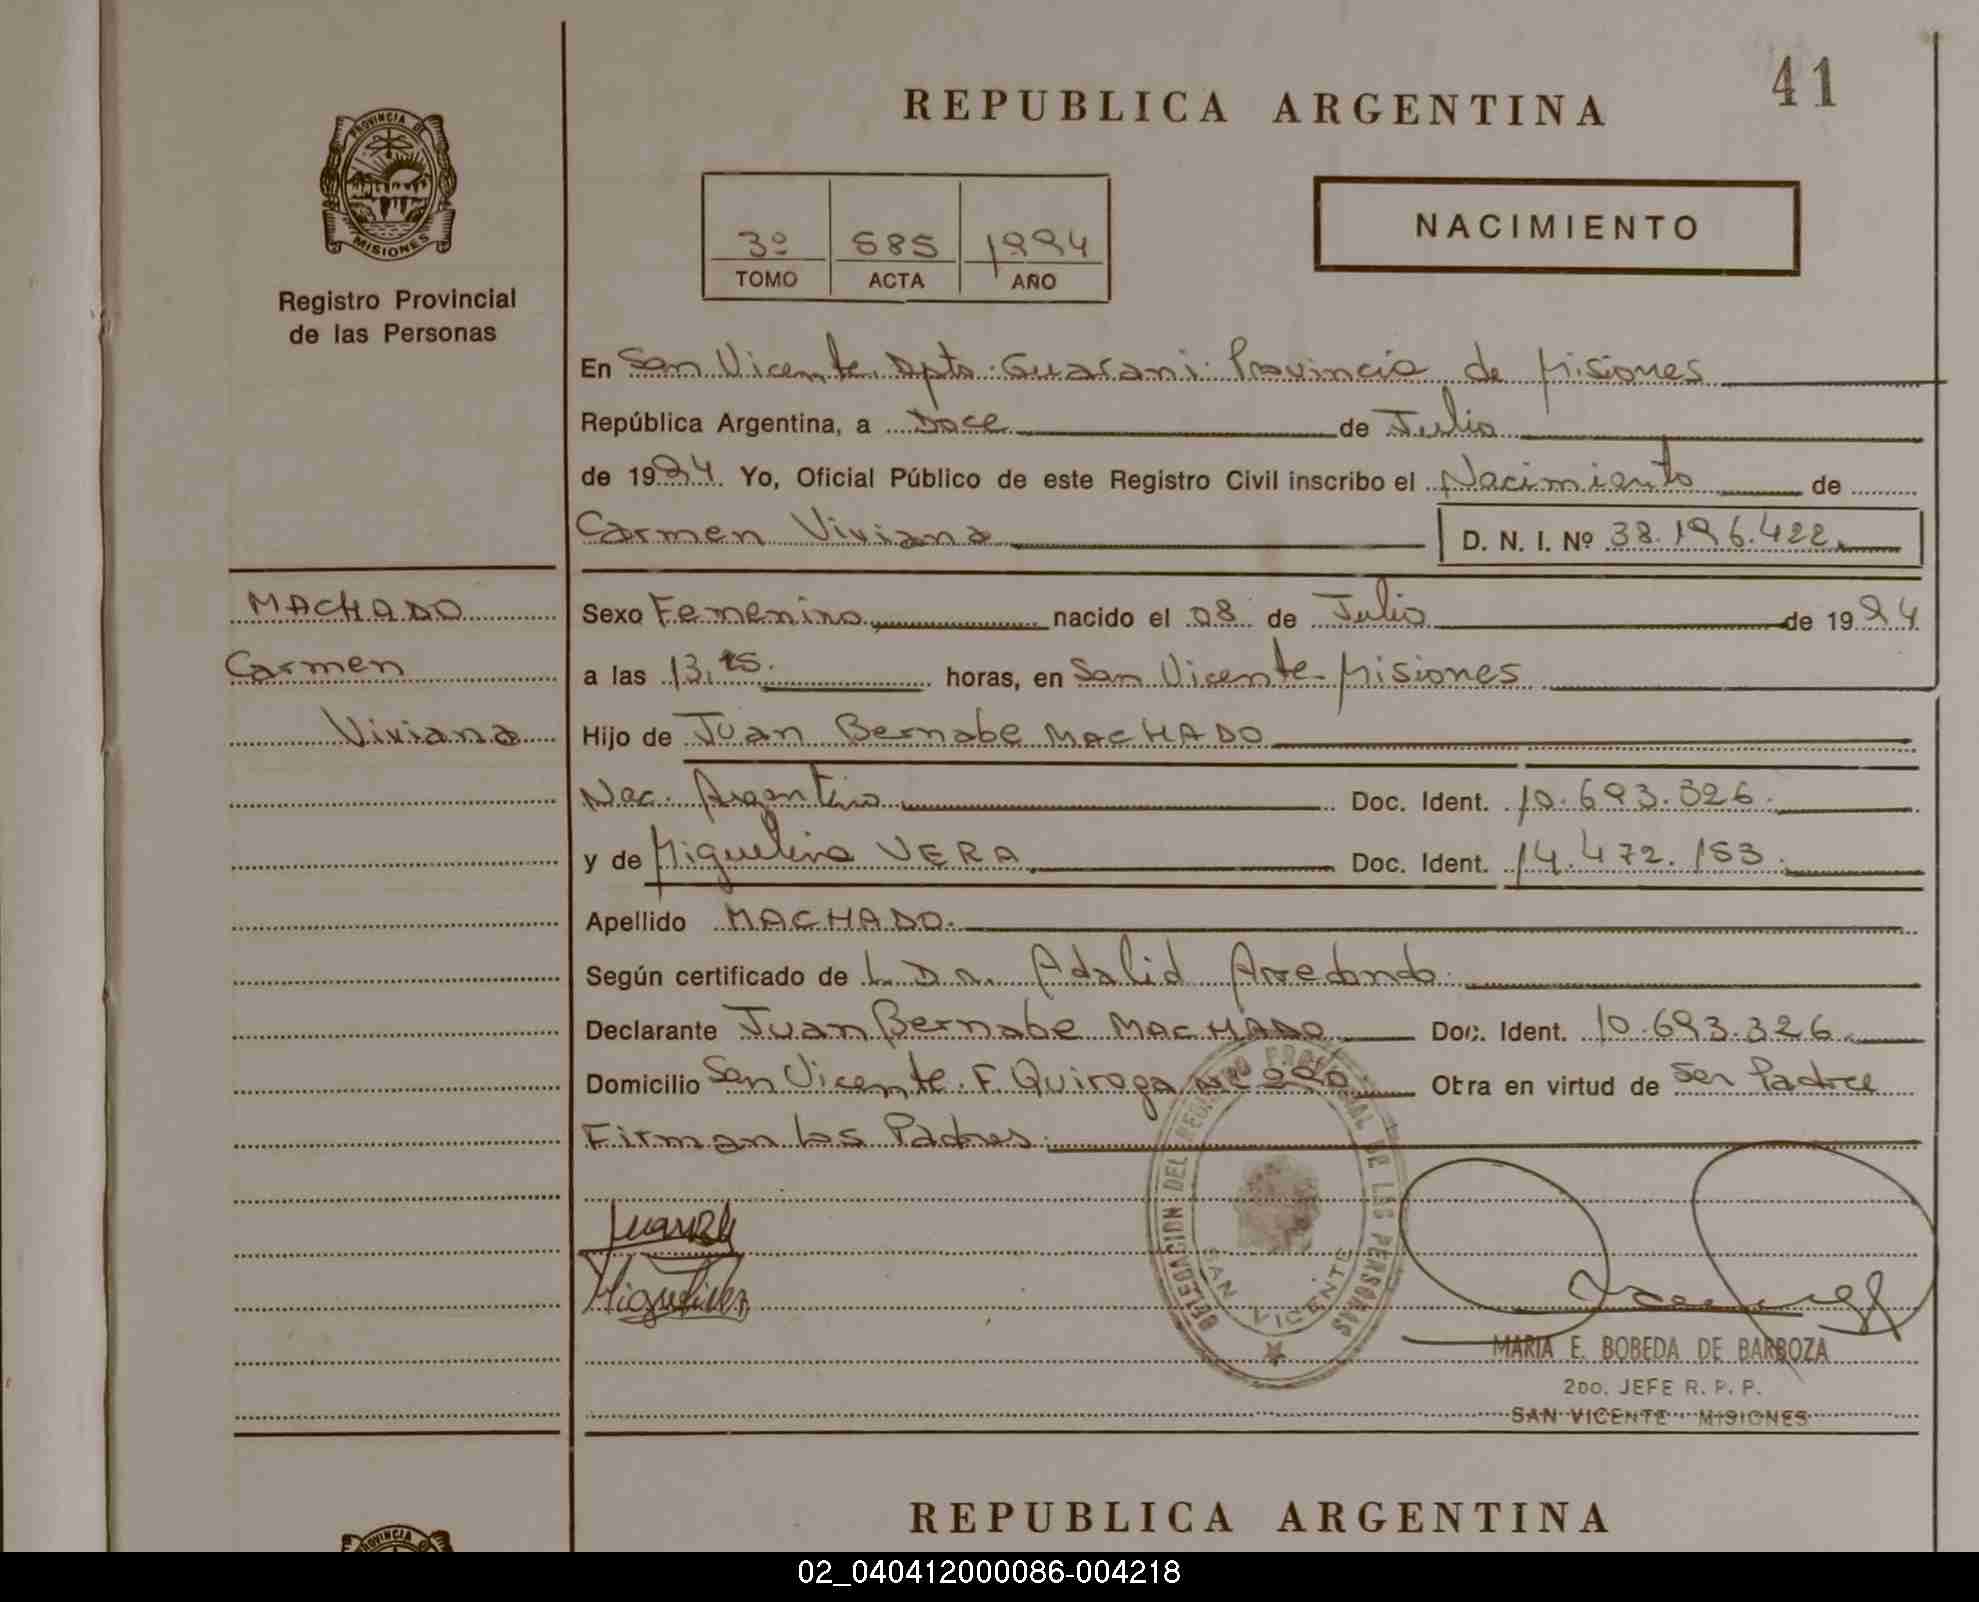 41
REPUBLICA ARGENTINA
PROVINCIA DE
MISIONES
Registro Provincial
de las Personas
3º 685 1994
TOMO ACTA AÑO
NACIMIENTO
En San Vicente Dpto. Guarani. Provincia de Misiones
República Argentina, a Doce de Julio
de 1994. Yo, Oficial Público de este Registro Civil inscribo el Nacimiento de
Carmen Viviana D. N. I. Nº 38.196.422.
MACHADO
Carmen
Viviana
Sexo Femenino nacido el 08 de Julio de 1994
a las 13,15. horas, en San Vicente - Misiones
Hijo de Juan Bernabe MACHADO
Nac. Argentino Doc. Ident. 10.693.326.
y de Miguelina VERA Doc. Ident. 14.472.153.
Apellido MACHADO.
Según certificado de L. Dr. Adalid Arredondo.
Declarante Juan Bernabe MACHADO Doc. Ident. 10.693.326.
Domicilio San Vicente. F. Quiroga Otra en virtud de Ser Padre
Firman los Padres.
DELEGACION DEL REGISTRO PROVINCIAL DE LAS PERSONAS
SAN VICENTE
MARIA E. BOBEDA DE BARBOZA
2DO. JEFE R. P. P.
SAN VICENTE - MISIONES
REPUBLICA ARGENTINA
PROVINCIA
02_040412000086-004218